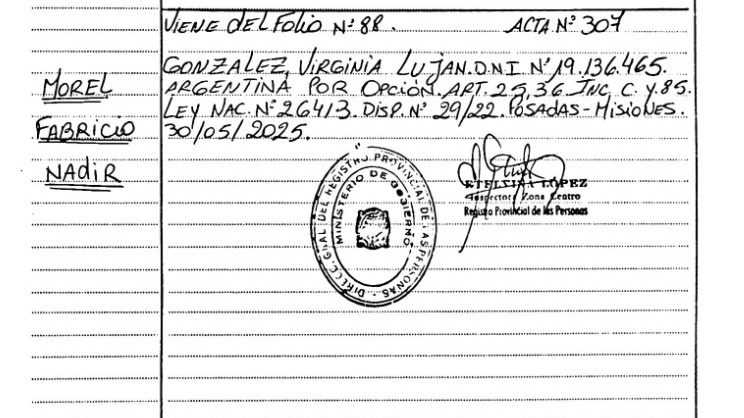 VIENE DEL FOLIO Nº 88. ACTA Nº 307
MOREL
FABRICIO
NADIR
GONZALEZ, VIRGINIA LUJAN. D.N.I Nº 19.136.465.
ARGENTINA POR OPCIÓN. ART. 25, 36. INC. C. y. 85.
LEY NAC. Nº 26413. DISP. Nº 29/22. POSADAS - MISIONES.
30/05/2025.
DIRECC. GRAL DEL REGISTRO PROVINCIAL DE LAS PERSONAS
MINISTERIO DE GOBIERNO
ETELVINA LÓPEZ
Inspectora Zona Centro
Registro Provincial de las Personas